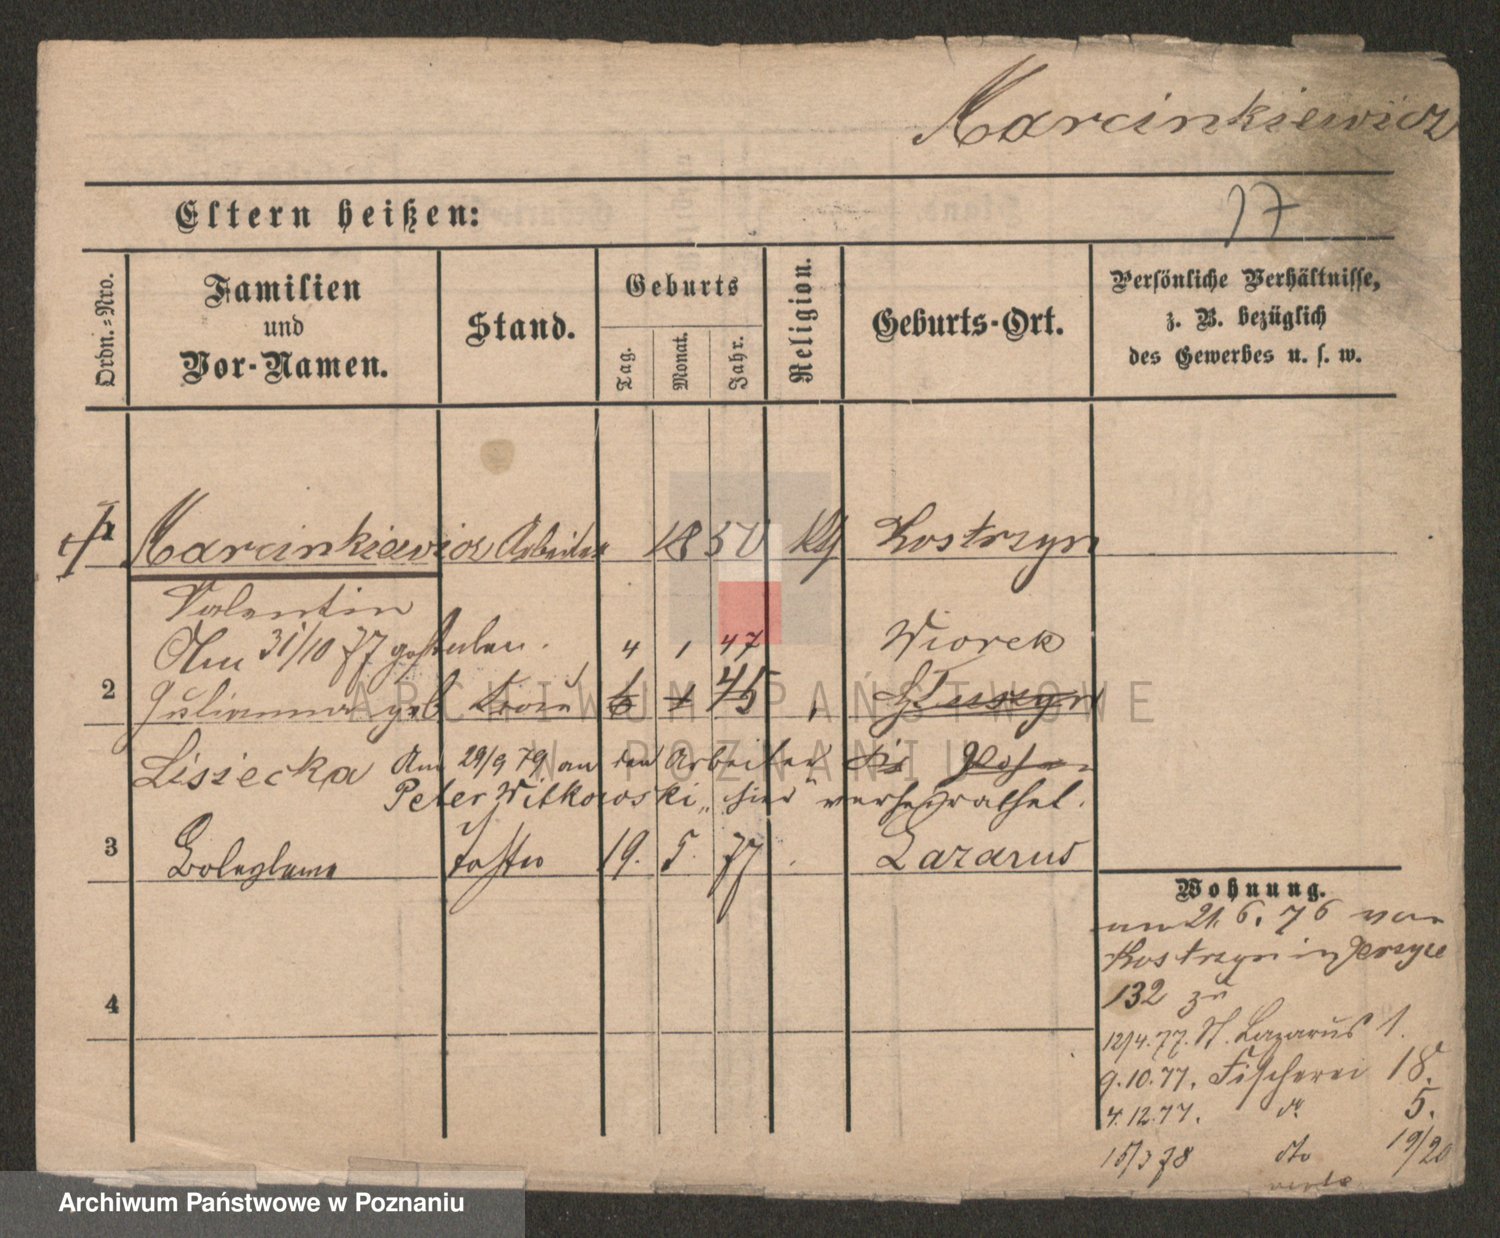 Marcinkiewicz
17
Eltern heißen:
Ordn.=Nro.
Familien
und
Vor-Namen.
Stand.
Geburts
Tag.
Monat.
Jahr.
Religion.
Geburts-Ort.
Persönliche Verhältnisse,
z. B. bezüglich
des Gewerbes u. s. w.
1 Marcinkiewicz Arbeiter 1850 Kth Kostrzyn
Valentin
Am 31/10 77 gestorben. 4 1 47 Wiorek
2 Julianna geb Frau 6 1 45
ARCHIWUM PAŃSTWOWE
W POZNANIU
Lisiecka Am 29/9 79 an den Arbeiter
Peter Witkowski „hier" verheirathet.
3 Boleslawa Tochter 19. 5. 77 Lazarus
4
Wohnung.
am 21. 6. 76 von
Kostrzyn in Jerzyce
132 zu
12/4. 77. St. Lazarus 1.
9. 10. 77. Fischerei 18.
4. 12. 77. do 5.
15/3 78 dto 19/20
verte
Archiwum Państwowe w Poznaniu